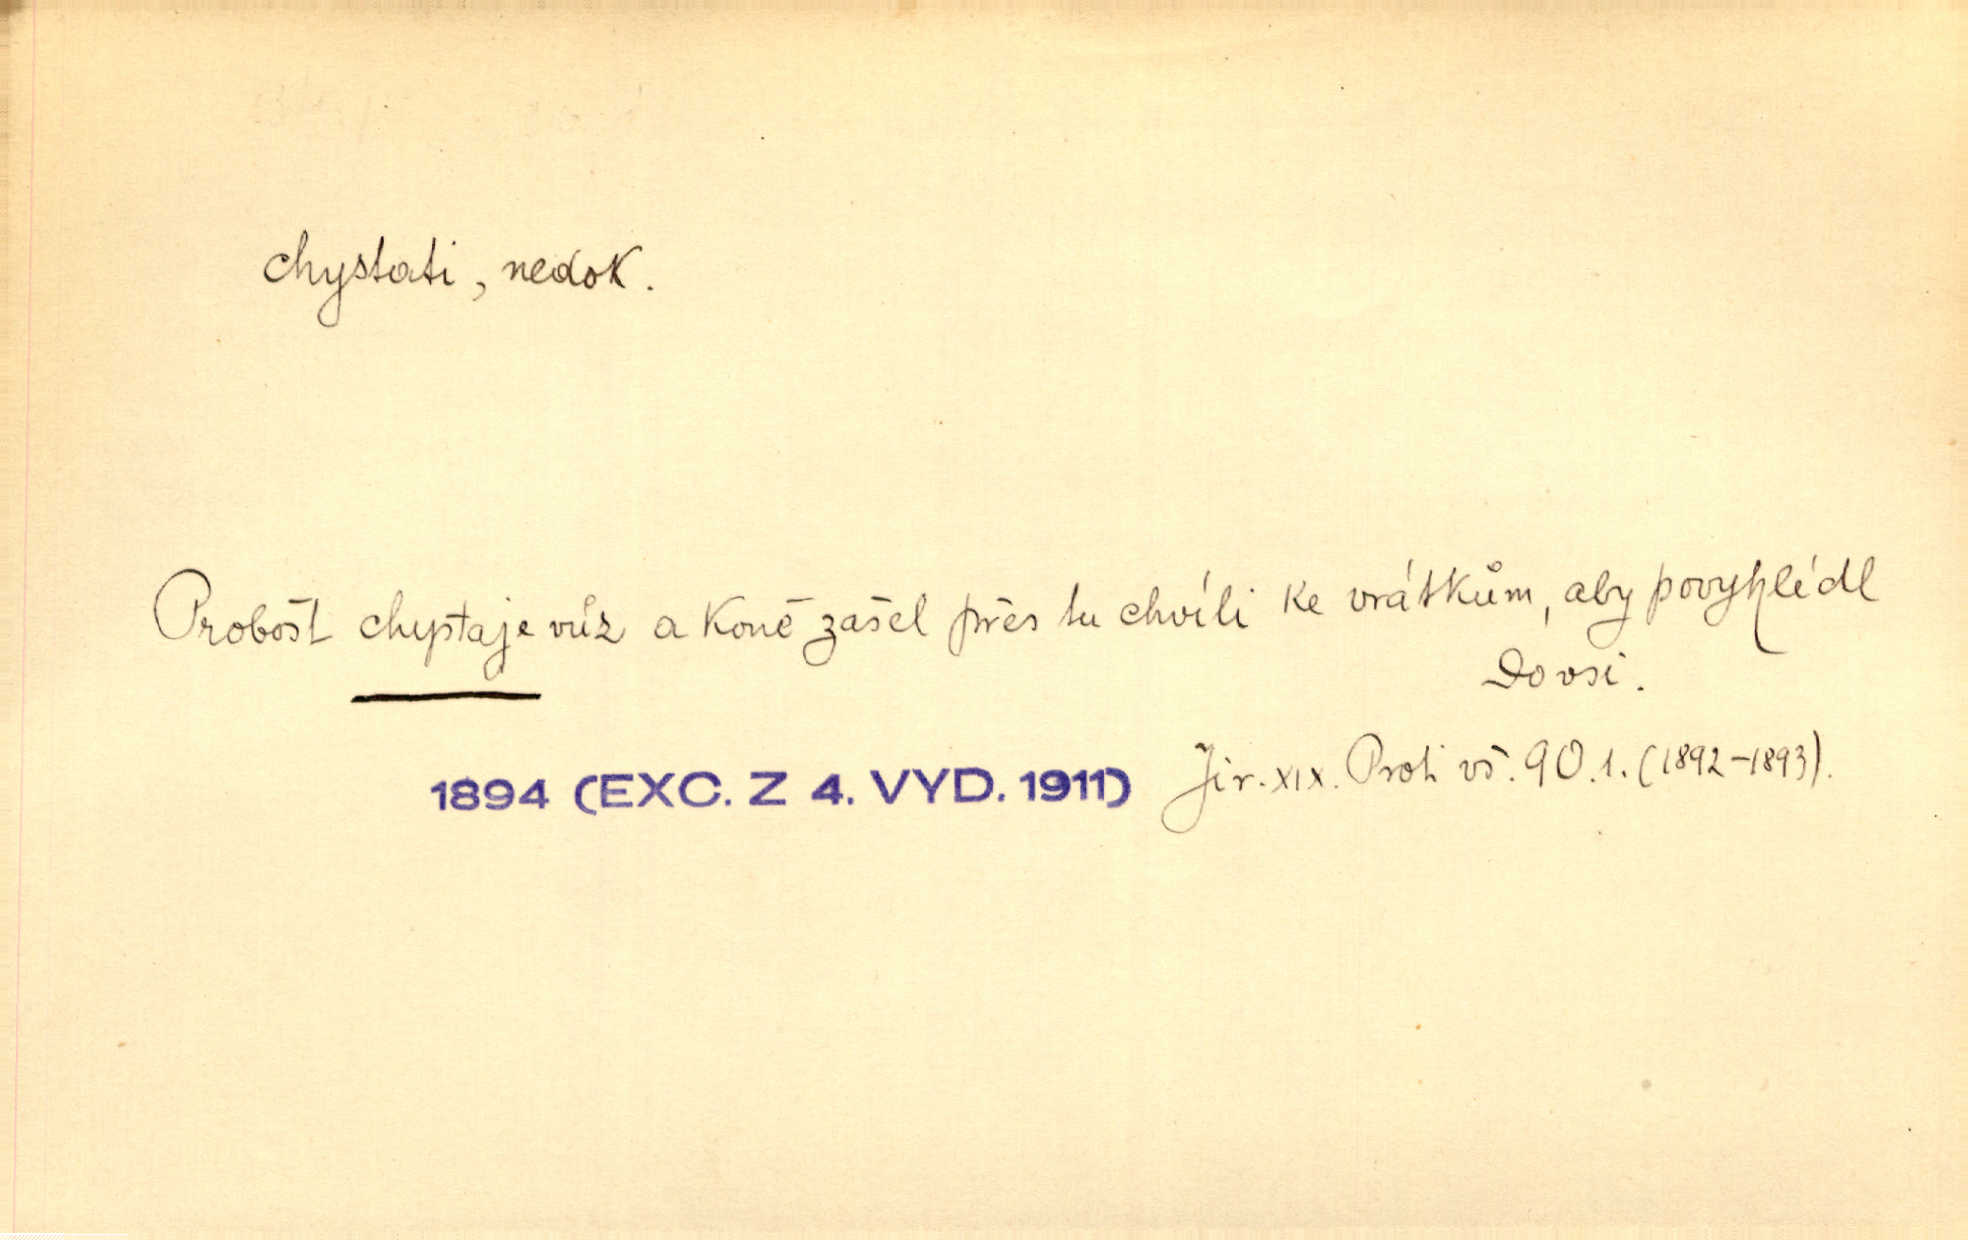 chystati, nedok.
Probošt chystaje vůz a koně zašel přes tu chvíli ke vrátkům, aby povyhlédl
do vsi.
1894 (EXC. Z 4. VYD. 1911) Jir. XIX. Proti vš. 90.1. (1892-1893).